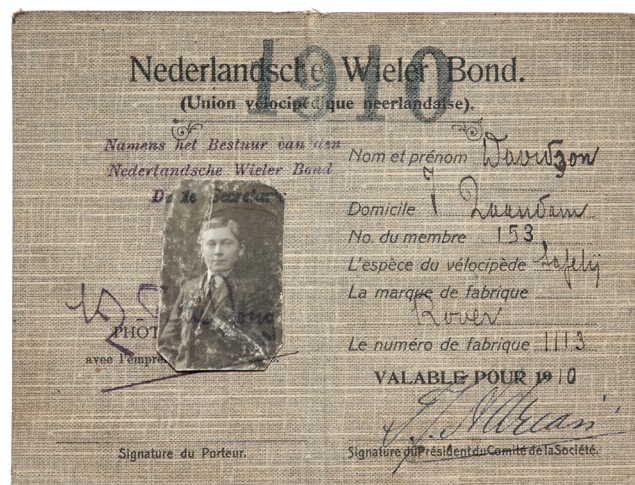 1910
Nederlandsche Wieler Bond.
(Union vélocipédique neerlandaise).
Namens het Bestuur van den
Nederlandsche Wieler Bond
De 1e Secretaris
PHOT
avec l'empre
Signature du Porteur.
Nom et prénom Davidzon
Domicile Zaandam
No. du membre 153
L'espèce du vélocipède
La marque de fabrique
Rover
Le numéro de fabrique 1113
VALABLE POUR 1910
Signature du Président du Comité de la Société.